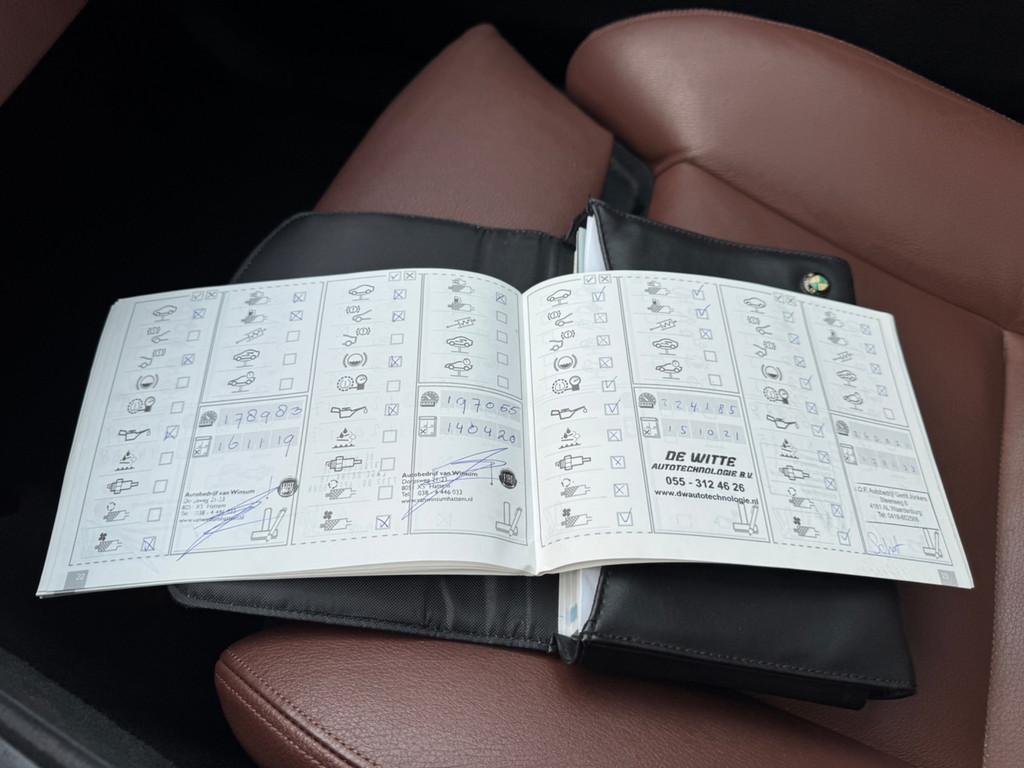 178983
161119
Autobedrijf van Winsum
Dorpsweg 21-23
8051 XS Hattem
Tel. 038 - 4 446 033
www.vanwinsumhattem.nl
22
197065
140420
Autobedrijf van Winsum
Dorpsweg 21-23
8051 XS Hattem
Tel. 038 - 4 446 033
www.vanwinsumhattem.nl
224185
151021
DE WITTE
AUTOTECHNOLOGIE B.V.
055 - 312 46 26
www.dwautotechnologie.nl
Autobedrijf Gerrit Jonkers
Steenweg
4181 AL Waardenburg